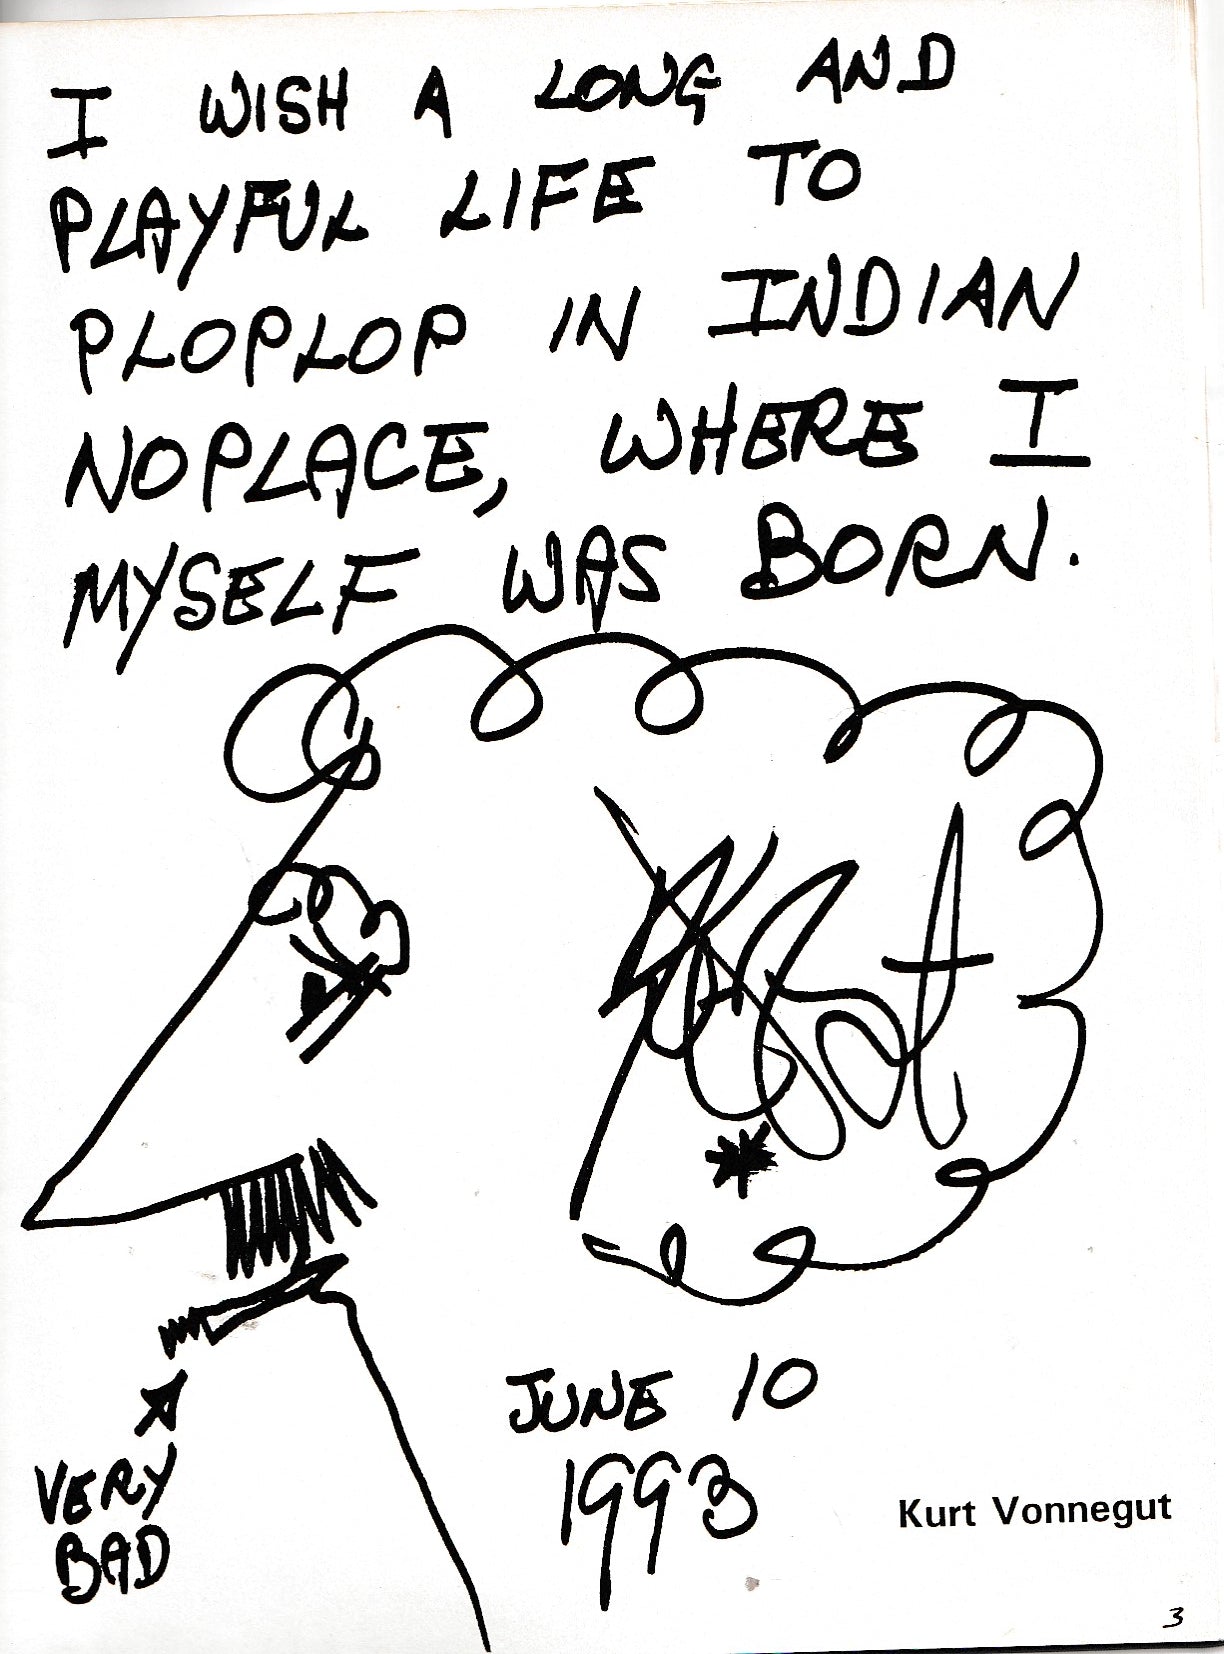 I WISH A LONG AND
PLAYFUL LIFE TO
PLOPLOP IN INDIAN
NOPLACE, WHERE I
MYSELF WAS BORN.
JUNE 10
1993
VERY
BAD
Kurt Vonnegut
3